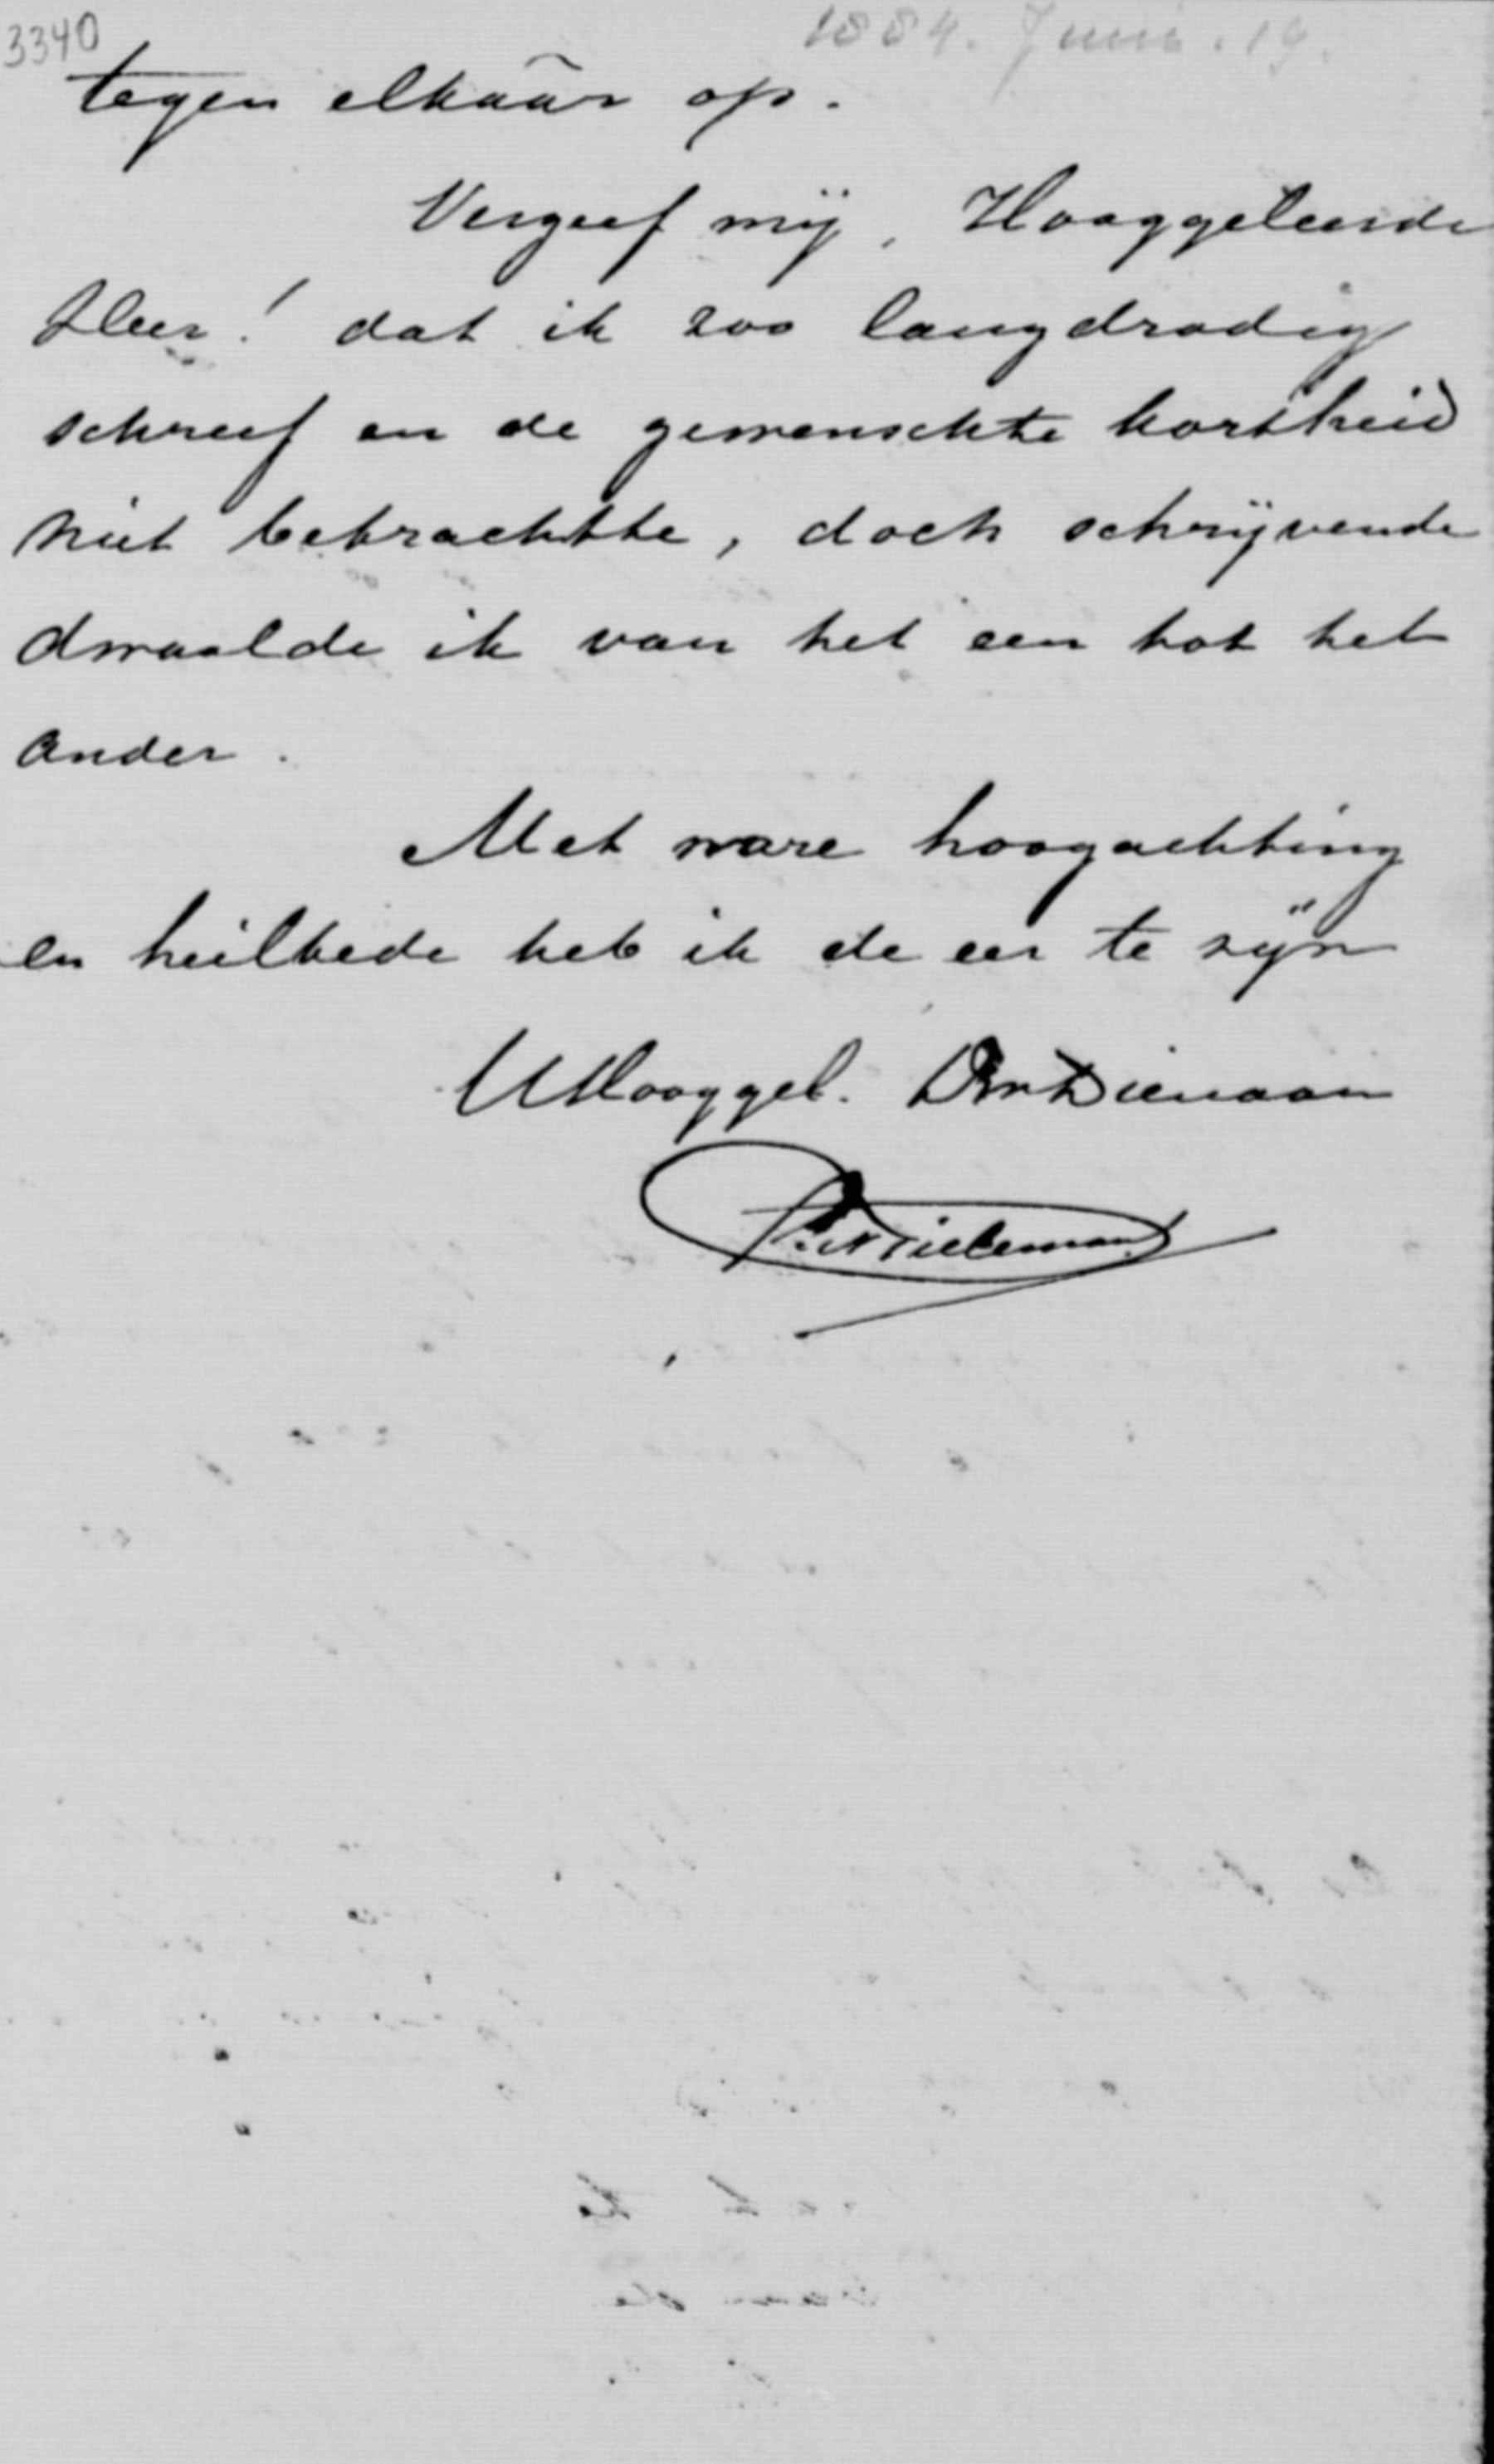 3340
1884. Juni. 19.
tegen elkaâr op.
Vergeef mij, Hooggeleerde
Heer! dat ik zoo langdradig
schreef en de gewenschte kortheid
niet betrachtte, doch schrijvende
dwaalde ik van het een tot het
ander.
Met ware hoogachting
en heilbede heb ik de eer te zijn
UHooggel. Dw Dienaar